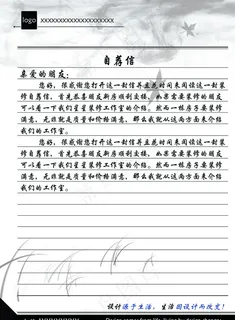 logo
xxxxxxxxxxxxxxxxxxxx
自荐信
亲爱的朋友:
您好,很感谢您打开这一封信并且花时间来阅读这一封装
修自荐信,首先恭喜朋友新房顺利交楼,如果需要装修的朋友
可以看一下我们星星装修工作室的介绍。然而一栋房子要装修
满意,无非就是质量和价格满意,那么我就从这两方面来介绍
我们的工作室。
您好,很感谢您打开这一封信并且花时间来阅读这一封装
修自荐信,首先恭喜朋友新房顺利交楼,如果需要装修的朋友
可以看一下我们星星装修工作室的介绍。然而一栋房子要装修
满意,无非就是质量和价格满意,那么我就从这两方面来介绍
我们的工作室。
设计源于生活,生活因设计而改变!